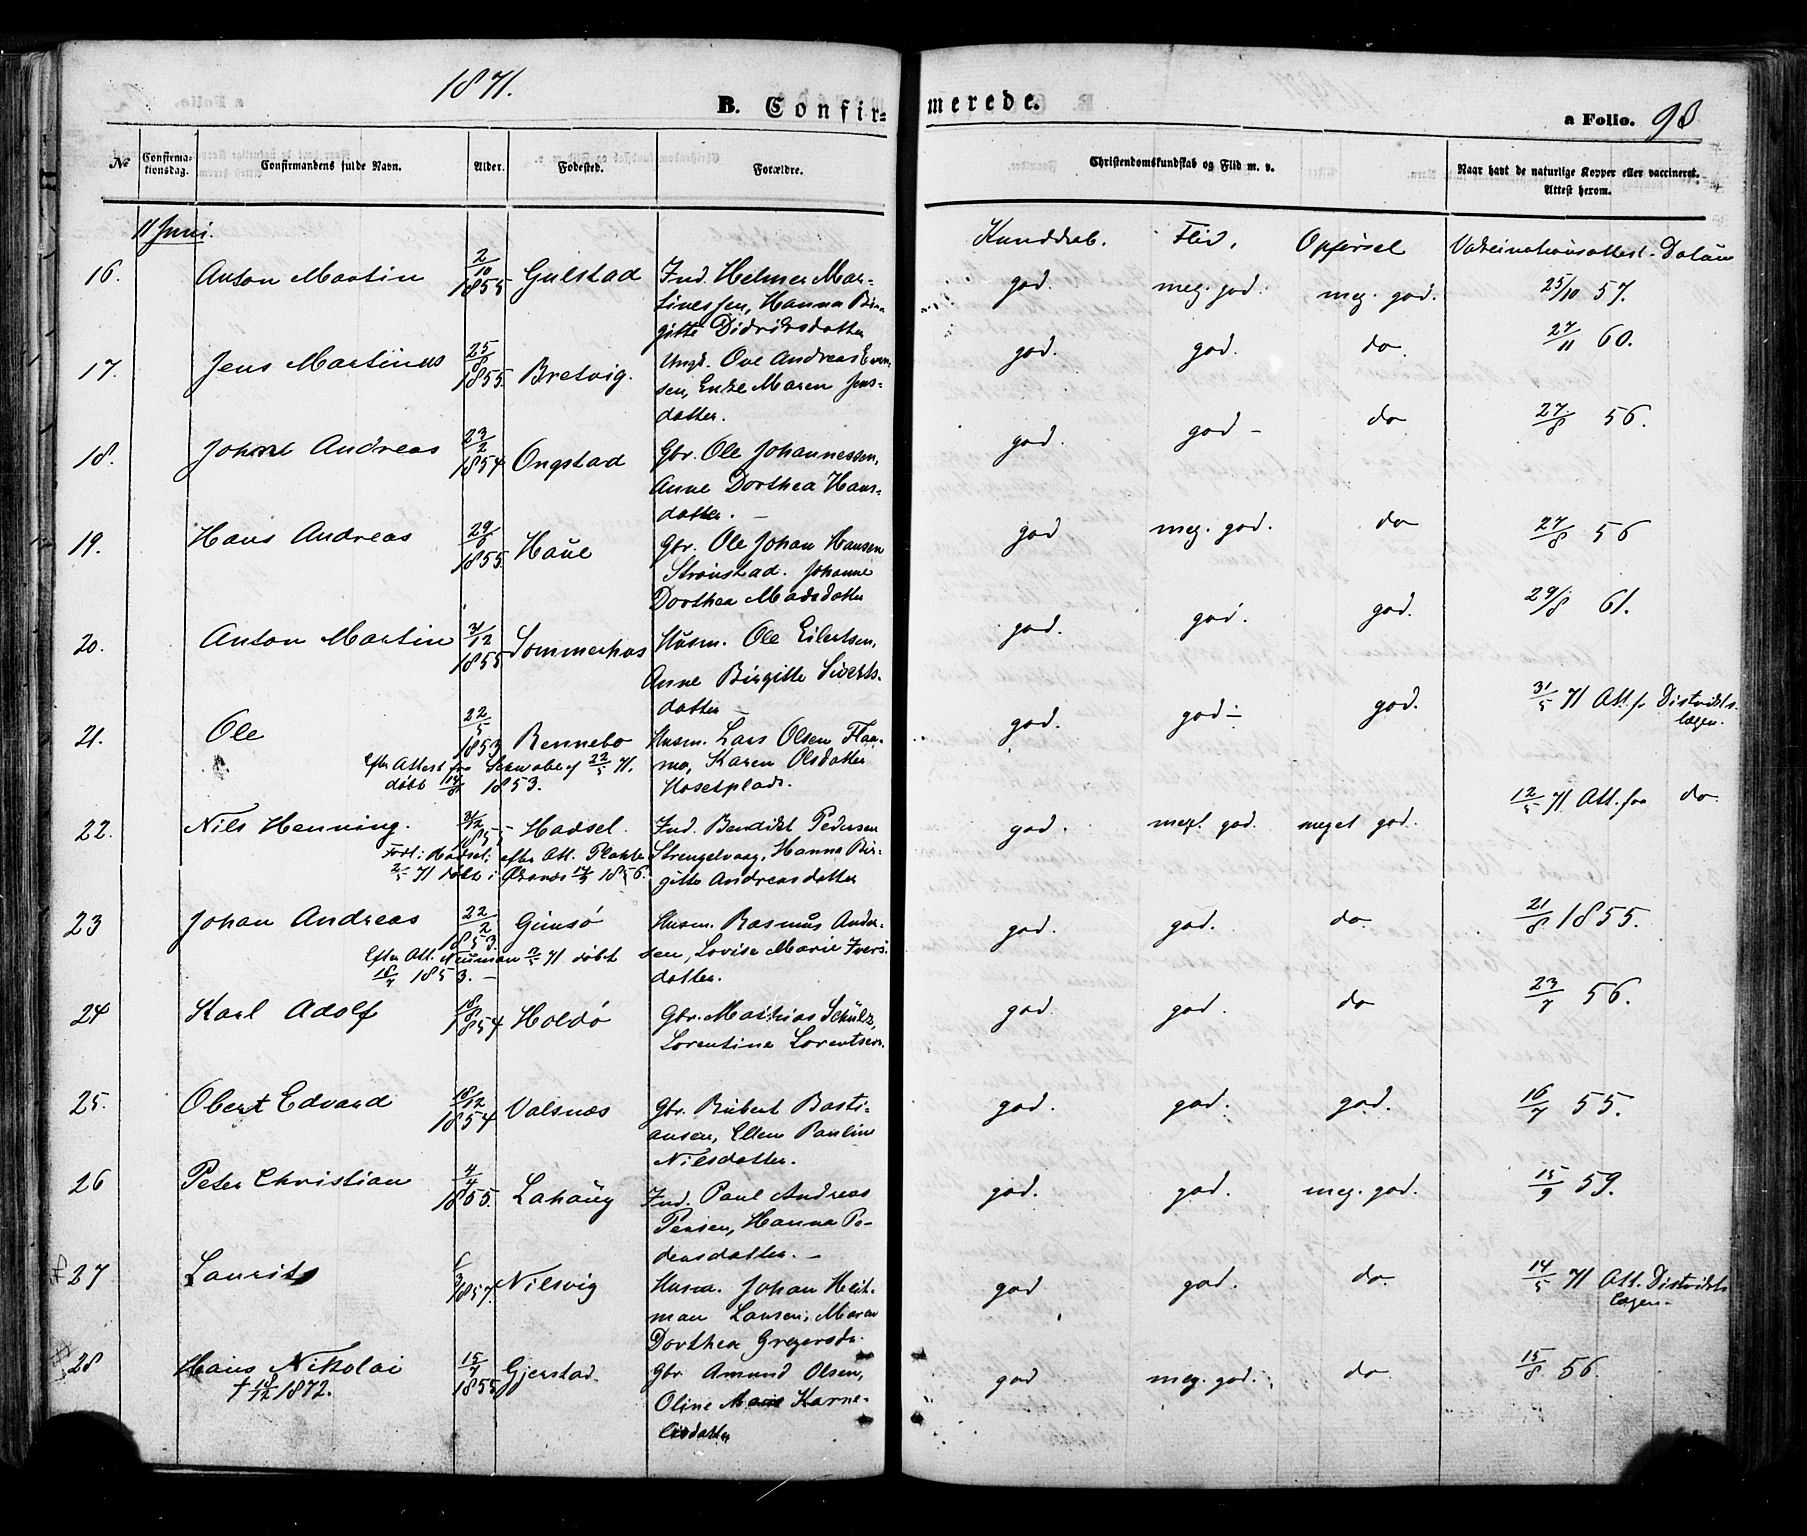 1871.
B. Confir-
merede.
a Folio. 98
No Confirma-tionsdag. Confirmandens fulde Navn. Alder. Fødested. Forældre. Christendomskundskab og Flid m. v. Naar havt de naturlige Kopper eller vaccineret. Attest herom.
11 Juni. Kundskab. Flid. Opførsel Vakcinationsattest. Datum
16. Anton Martin 2/10 1855 Gulstad Ind. Helmer Mar- god. meg. god. meg. god. 25/10 57.
tinessen, Hanna Bir-
gitte Didriksdatter
17. Jens Martinus 25/8 1855. Bretvig. Ungk. Ove Andreas Even- god. god. do. 27/11 60.
sen, Enke Maren Jens-
datter.
18. Johan Andreas 23/2 1854 Ongstad Gbr. Ole Johannessen, god. god - do 27/8 56.
Anne Dorthea Hans-
datter. -
19. Hans Andreas 29/8 1855 Haue Gbr. Ole Johan Hansen god meg. god. do 27/8 56
Strønstad. Johanne
Dorthea Madsdatter
20. Anton Martin 3/12 1855 Sommerhus Husm. Ole Eilertsen, god. god. god. 29/8 61.
Anne Birgitte Siverts-
datter
21. Ole 22/5 1853 Rennebo Husm. Lars Olsen Flaa- god. god- god. 31/5 71 Att. fr Distrikts-
lægen.
Efter Attest fra Schwabe af 22/5 71. mo, Karen Olsdatter
døbt 14/8 1853. Hosetplads.
22. Nils Henning. 31/12 1855 Hadsel. Ind. Bendikt Pedersen god. meget god. meget god. 12/5 71 Att. fra do.
Født i Hadsel; efter Att. Strengelvaag, Hanna Bir-
2/5 71 døbt i Øksnæs 1856. gitte Andreasdatter
23 Johan Andreas 22/2 1853. Gimsø Husm. Rasmus Ander- god. god. do. 21/8 1855.
Efter Att. Neuman 71 døbt sen, Lovise Marie Ivers-
16/7 1853. - datter.
24 Karl Adolf 18/8 1854 Holdø Gbr. Mathias Schülz, god. god. do 23/7 56.
Lorentine Lorentsen.
25. Obert Edvard 18/12 1854 Valsnæs Gbr. Rubert Basti- god. god. god. 16/7 55.
ansen, Ellen Pauline
Nilsdatter.
26 Peter Christian 4/4 1855. Lahaug Ind. Paul Andreas god. god. meg. god. 15/9 59.
Persen, Hanna Pe-
dersdatter. -
27 Laurits 1/3 1857. Nilsvig Husm. Johan Heit- god god. do 14/5 71 Att. Distrikts
lægen.
man Larsen, Maren
Dorthea Gregersdr.
28 Hans Nikolai 15/7 1855 Gjerstad. Gbr Amund Olsen, god meg. god. do. 15/8 56.
† 18/12 1872. Oline Marie Karne-
liusdatter